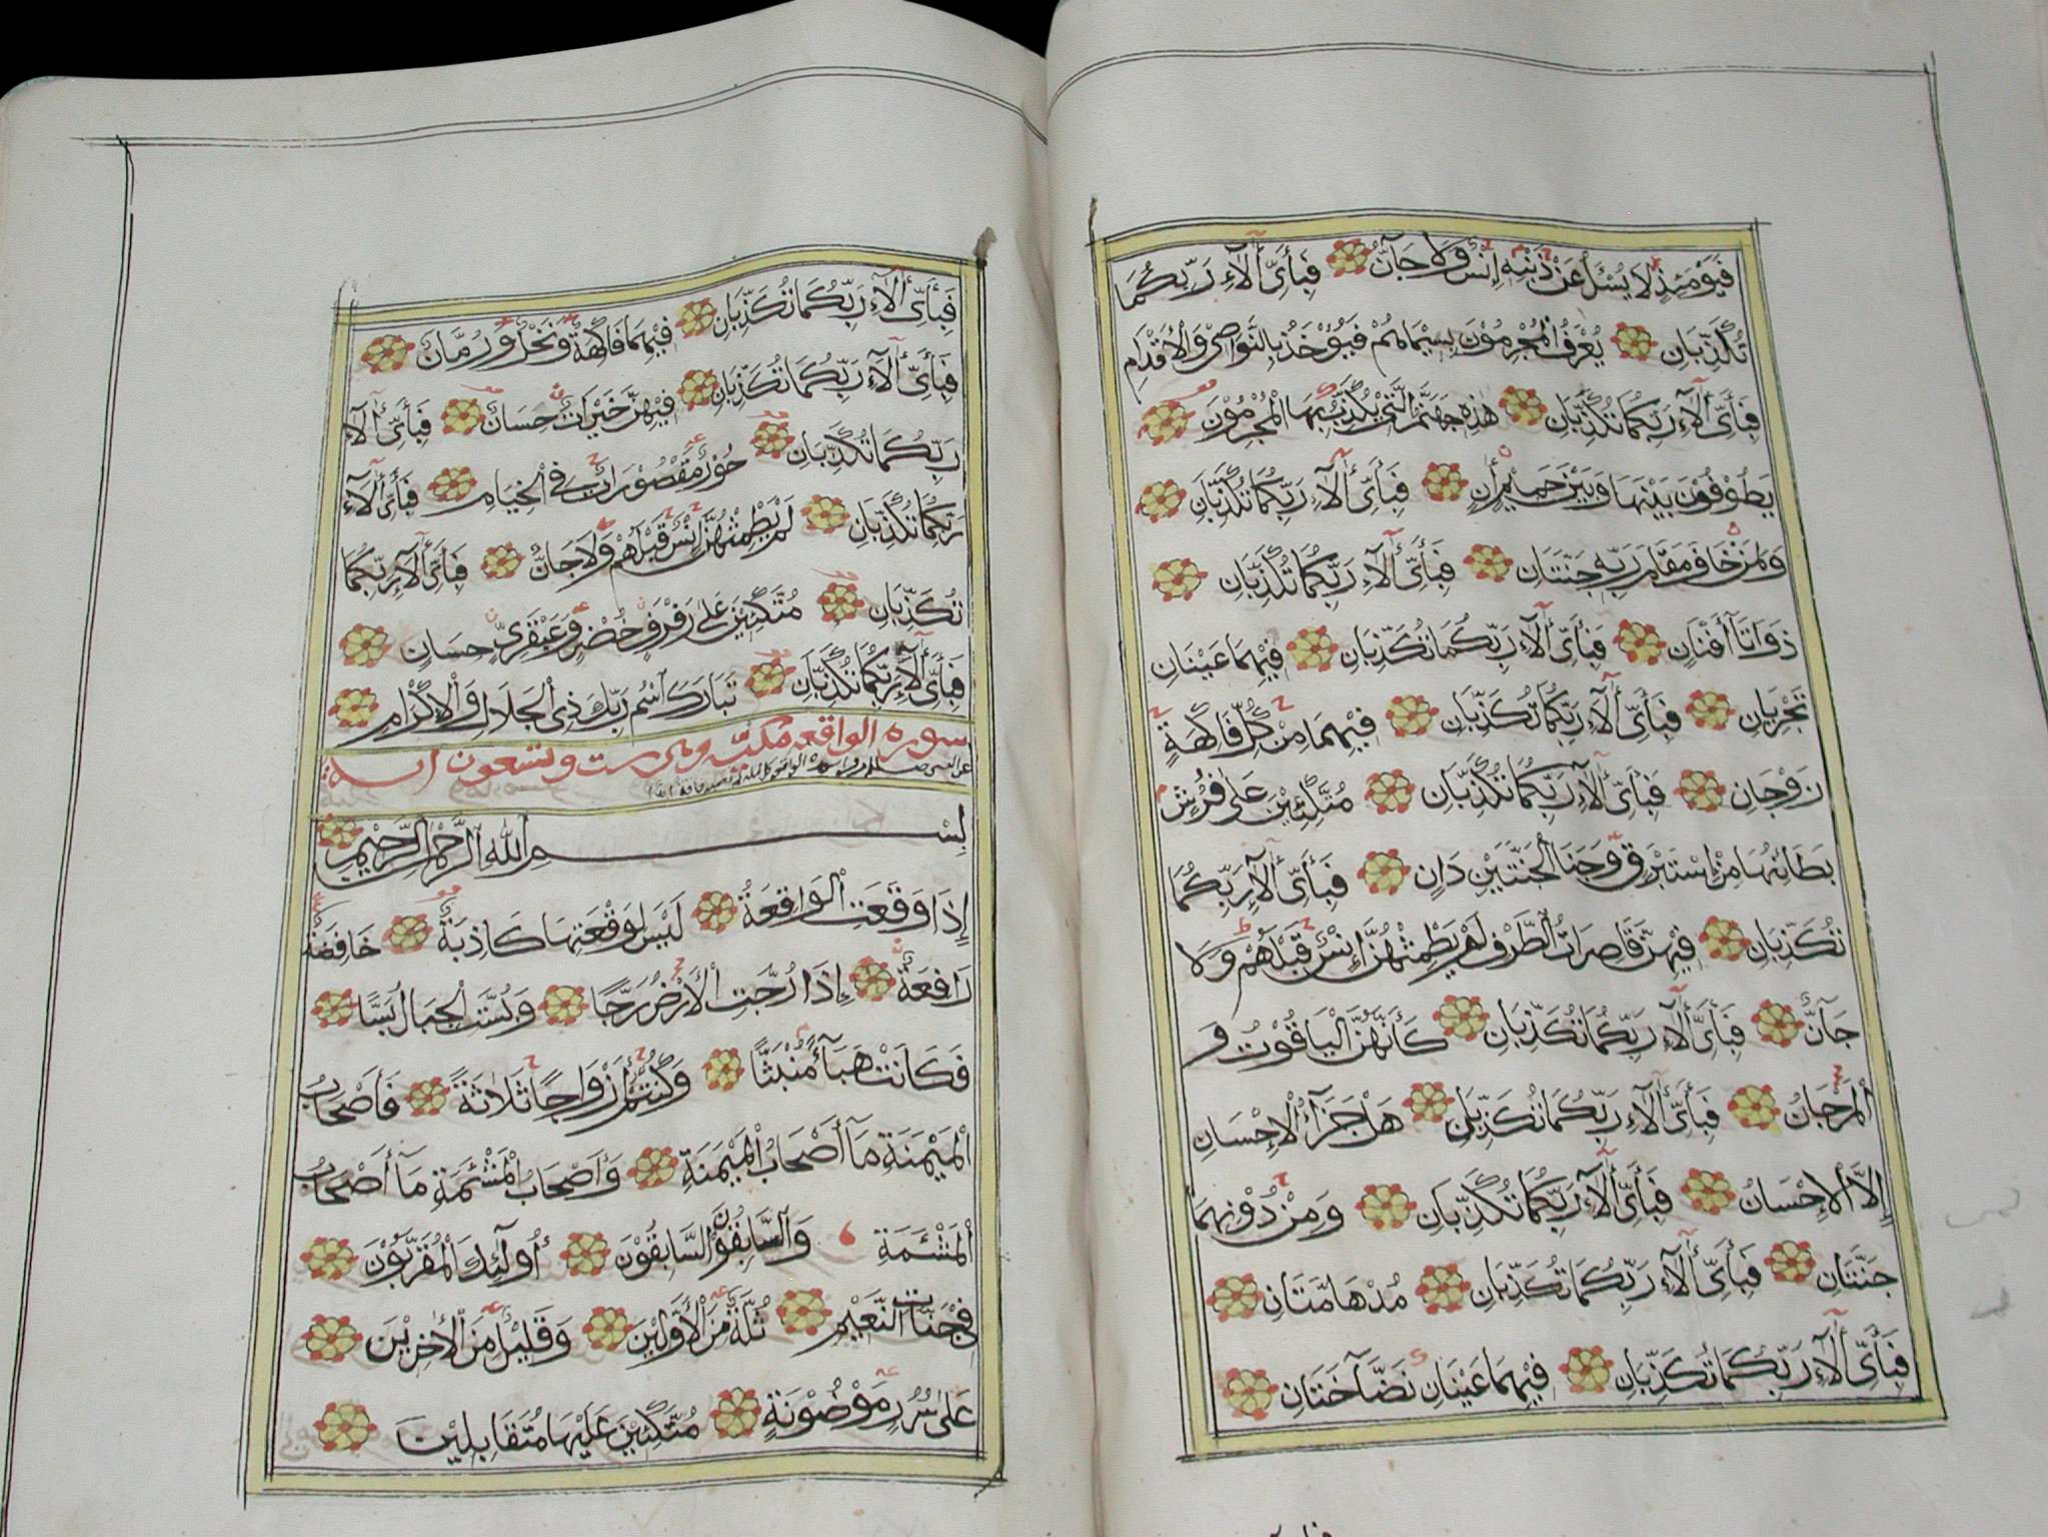 فَيَوْمَئِذٍ لَا يُسْئَلُ عَنْ ذَنْبِهِ إِنْسٌ وَلَا جَآنٌّ فَبِأَىِّ اٰلَآءِ رَبِّكُمَا
تُكَذِّبَانِ يُعْرَفُ الْمُجْرِمُوْنَ بِسِيْمَاهُمْ فَيُؤْخَذُ بِالنَّوَاصِىْ وَالْاَقْدَامِ
فَبِأَىِّ اٰلَآءِ رَبِّكُمَا تُكَذِّبَانِ هٰذِهِ جَهَنَّمُ الَّتِىْ يُكَذِّبُ بِهَا الْمُجْرِمُوْنَ
يَطُوْفُوْنَ بَيْنَهَا وَبَيْنَ حَمِيْمٍ أٰنٍ فَبِأَىِّ اٰلَآءِ رَبِّكُمَا تُكَذِّبَانِ
وَلِمَنْ خَافَ مَقَامَ رَبِّهِ جَنَّتَانِ فَبِأَىِّ اٰلَآءِ رَبِّكُمَا تُكَذِّبَانِ
ذَوَاتَا أَفْنَانٍ فَبِأَىِّ اٰلَآءِ رَبِّكُمَا تُكَذِّبَانِ فِيْهِمَا عَيْنَانِ
تَجْرِيَانِ فَبِأَىِّ اٰلَآءِ رَبِّكُمَا تُكَذِّبَانِ فِيْهِمَا مِنْ كُلِّ فَاكِهَةٍ
زَوْجَانِ فَبِأَىِّ اٰلَآءِ رَبِّكُمَا تُكَذِّبَانِ مُتَّكِئِيْنَ عَلٰى فُرُشٍ
بَطَائِنُهَا مِنْ إِسْتَبْرَقٍ وَجَنَا الْجَنَّتَيْنِ دَانٍ فَبِأَىِّ اٰلَآءِ رَبِّكُمَا
تُكَذِّبَانِ فِيْهِنَّ قَاصِرَاتُ الطَّرْفِ لَمْ يَطْمِثْهُنَّ إِنْسٌ قَبْلَهُمْ وَلَا
جَآنٌّ فَبِأَىِّ اٰلَآءِ رَبِّكُمَا تُكَذِّبَانِ كَأَنَّهُنَّ الْيَاقُوْتُ وَ
الْمَرْجَانُ فَبِأَىِّ اٰلَآءِ رَبِّكُمَا تُكَذِّبَانِ هَلْ جَزَآءُ الْاِحْسَانِ
إِلَّا الْاِحْسَانُ فَبِأَىِّ اٰلَآءِ رَبِّكُمَا تُكَذِّبَانِ وَمِنْ دُوْنِهِمَا
جَنَّتَانِ فَبِأَىِّ اٰلَآءِ رَبِّكُمَا تُكَذِّبَانِ مُدْهَامَّتَانِ
فَبِأَىِّ اٰلَآءِ رَبِّكُمَا تُكَذِّبَانِ فِيْهِمَا عَيْنَانِ نَضَّاخَتَانِ
فَبِأَىِّ اٰلَآءِ رَبِّكُمَا تُكَذِّبَانِ فِيْهِمَا فَاكِهَةٌ وَنَخْلٌ وَرُمَّانٌ
فَبِأَىِّ اٰلَآءِ رَبِّكُمَا تُكَذِّبَانِ فِيْهِنَّ خَيْرَاتٌ حِسَانٌ فَبِأَىِّ اٰلَآءِ
رَبِّكُمَا تُكَذِّبَانِ حُوْرٌ مَقْصُوْرَاتٌ فِى الْخِيَامِ فَبِأَىِّ اٰلَآءِ
رَبِّكُمَا تُكَذِّبَانِ لَمْ يَطْمِثْهُنَّ إِنْسٌ قَبْلَهُمْ وَلَا جَانٌّ فَبِأَىِّ اٰلَآءِ رَبِّكُمَا
تُكَذِّبَانِ مُتَّكِئِيْنَ عَلٰى رَفْرَفٍ خُضْرٍ وَعَبْقَرِىٍّ حِسَانٍ
فَبِأَىِّ اٰلَآءِ رَبِّكُمَا تُكَذِّبَانِ تَبَارَكَ اسْمُ رَبِّكَ ذِى الْجَلَالِ وَالْاِكْرَامِ
سورة الواقعه مكيّة وهى ست وتسعون اية
بِسْمِ اللهِ الرَّحْمٰنِ الرَّحِيْمِ
إِذَا وَقَعَتِ الْوَاقِعَةُ لَيْسَ لِوَقْعَتِهَا كَاذِبَةٌ خَافِضَةٌ
رَافِعَةٌ إِذَا رُجَّتِ الْاَرْضُ رَجًّا وَبُسَّتِ الْجِبَالُ بَسًّا
فَكَانَتْ هَبَآءً مُنْبَثًّا وَكُنْتُمْ أَزْوَاجًا ثَلَاثَةً فَأَصْحَابُ
الْمَيْمَنَةِ مَآ أَصْحَابُ الْمَيْمَنَةِ وَأَصْحَابُ الْمَشْئَمَةِ مَآ أَصْحَابُ
الْمَشْئَمَةِ وَالسَّابِقُوْنَ السَّابِقُوْنَ أُولٰٓئِكَ الْمُقَرَّبُوْنَ
فِى جَنَّاتِ النَّعِيْمِ ثُلَّةٌ مِنَ الْاَوَّلِيْنَ وَقَلِيْلٌ مِنَ الْاٰخِرِيْنَ
عَلٰى سُرُرٍ مَوْضُوْنَةٍ مُتَّكِئِيْنَ عَلَيْهَا مُتَقَابِلِيْنَ